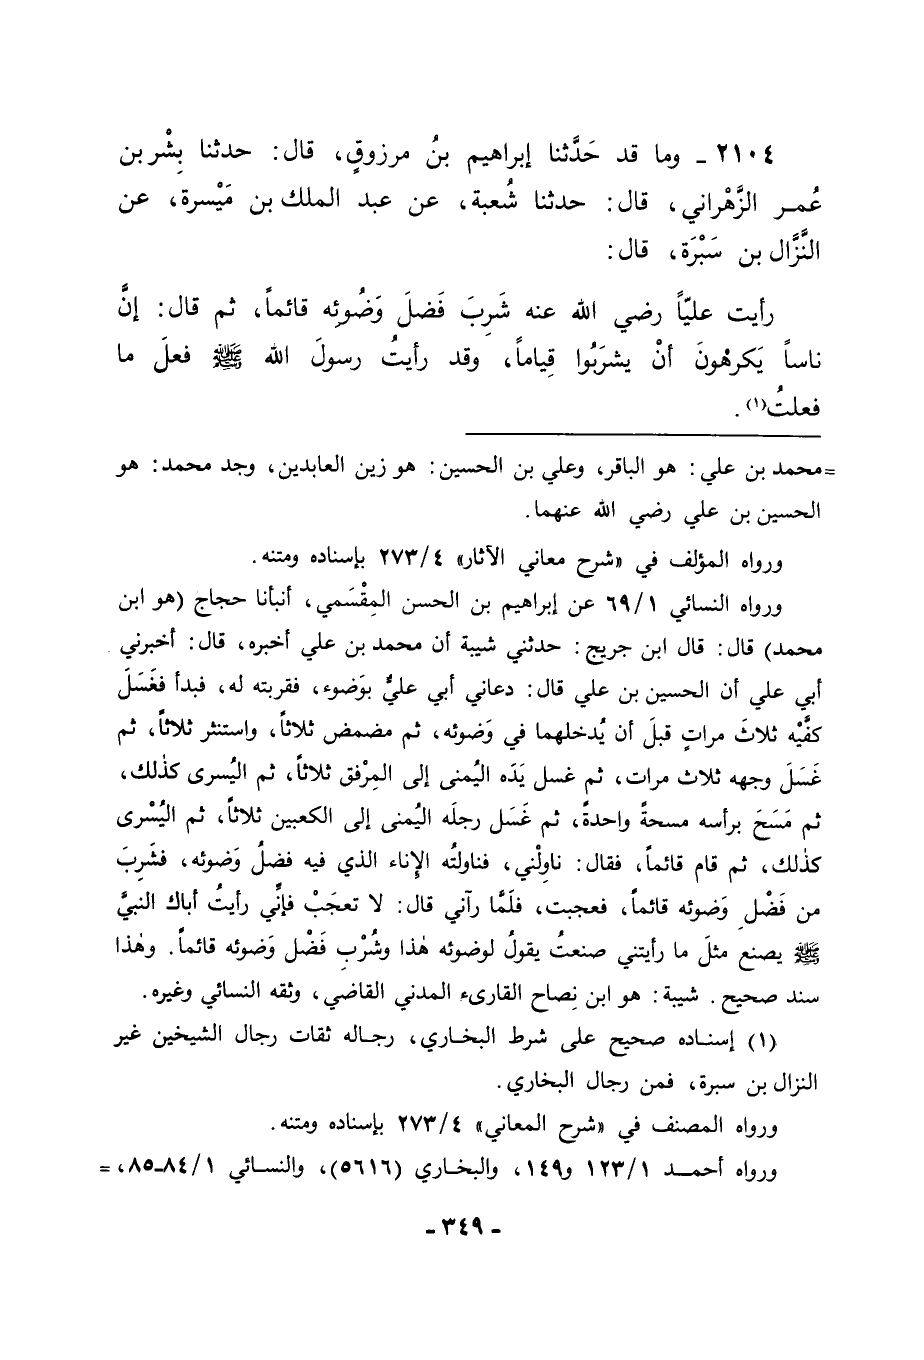 ٢١٠٤ ـ وما قد حَدَّثنا إبراهيم بنُ مرزوقٍ، قال: حدثنا بِشْر بن
عُمـر الزَّهْراني، قال: حدثنا شُعبة، عن عبد الملك بن مَيْسرة، عن
النَّزَّال بن سَبْرَة، قال:
رأيت عليّاً رضي الله عنه شَرِبَ فَضلَ وَضُوئِه قائماً، ثم قال: إنَّ
ناساً يَكرهُونَ أنْ يشرَبُوا قِياماً، وقد رأيتُ رسولَ الله ﷺ فعلَ ما
فعلتُ(١).
=محمد بن علي: هو الباقر، وعلي بن الحسين: هو زين العابدين، وجد محمد: هو
الحسين بن علي رضي الله عنهما.
ورواه المؤلف في «شرح معاني الآثار» ٢٧٣/٤ بإسناده ومتنه.
ورواه النسائي ٦٩/١ عن إبراهيم بن الحسن المِقْسَمي، أنبأنا حجاج (هو ابن
محمد) قال: قال ابن جريج: حدثني شيبة أن محمد بن علي أخبره، قال: أخبرني
أبي علي أن الحسين بن علي قال: دعاني أبي عليٌّ بوَضوء، فقربته له، فبدأ فغَسَلَ
كفَّيْه ثلاثَ مراتٍ قبلَ أن يُدخلهما في وَضوئه، ثم مضمض ثلاثاً، واستنثر ثلاثاً، ثم
غَسَلَ وجهه ثلاث مرات، ثم غسل يَدَه اليُمنى إلى المِرْفق ثلاثاً، ثم اليُسرى كذٰلك،
ثم مَسَحَ برأسه مسحةً واحدةً، ثم غَسَل رجلَه اليُمنى إلى الكعبين ثلاثاً، ثم اليُسْرى
كذٰلك، ثم قام قائماً، فقال: ناوِلْني، فناولتُه الإِناء الذي فيه فضلُ وَضوئه، فشَرِبَ
من فَضْلِ وَضوئه قائماً، فعجبت، فلَمَّا رآني قال: لا تعجَبْ فإنِّي رأيتُ أباك النبيَّ
ﷺ يصنع مثلَ ما رأيتني صنعتُ يقولُ لوضوئه هٰذا وشُرْبِ فَضْل وَضوئه قائماً. وهٰذا
سند صحيح. شيبة: هو ابن نِصاح القارىء المدني القاضي، وثقه النسائي وغيره.
(١) إسنـاده صحيح على شرط البخـاري، رجـاله ثقات رجال الشيخين غير
النزال بن سبرة، فمن رجال البخاري.
ورواه المصنف في «شرح المعاني» ٢٧٣/٤ بإسناده ومتنه.
ورواه أحمـــد ١٢٣/١ و١٤٩، والبخـاري (٥٦١٦)، والنسـائي ٨٤/١ـ٨٥، =
ـ ٣٤٩ ـ